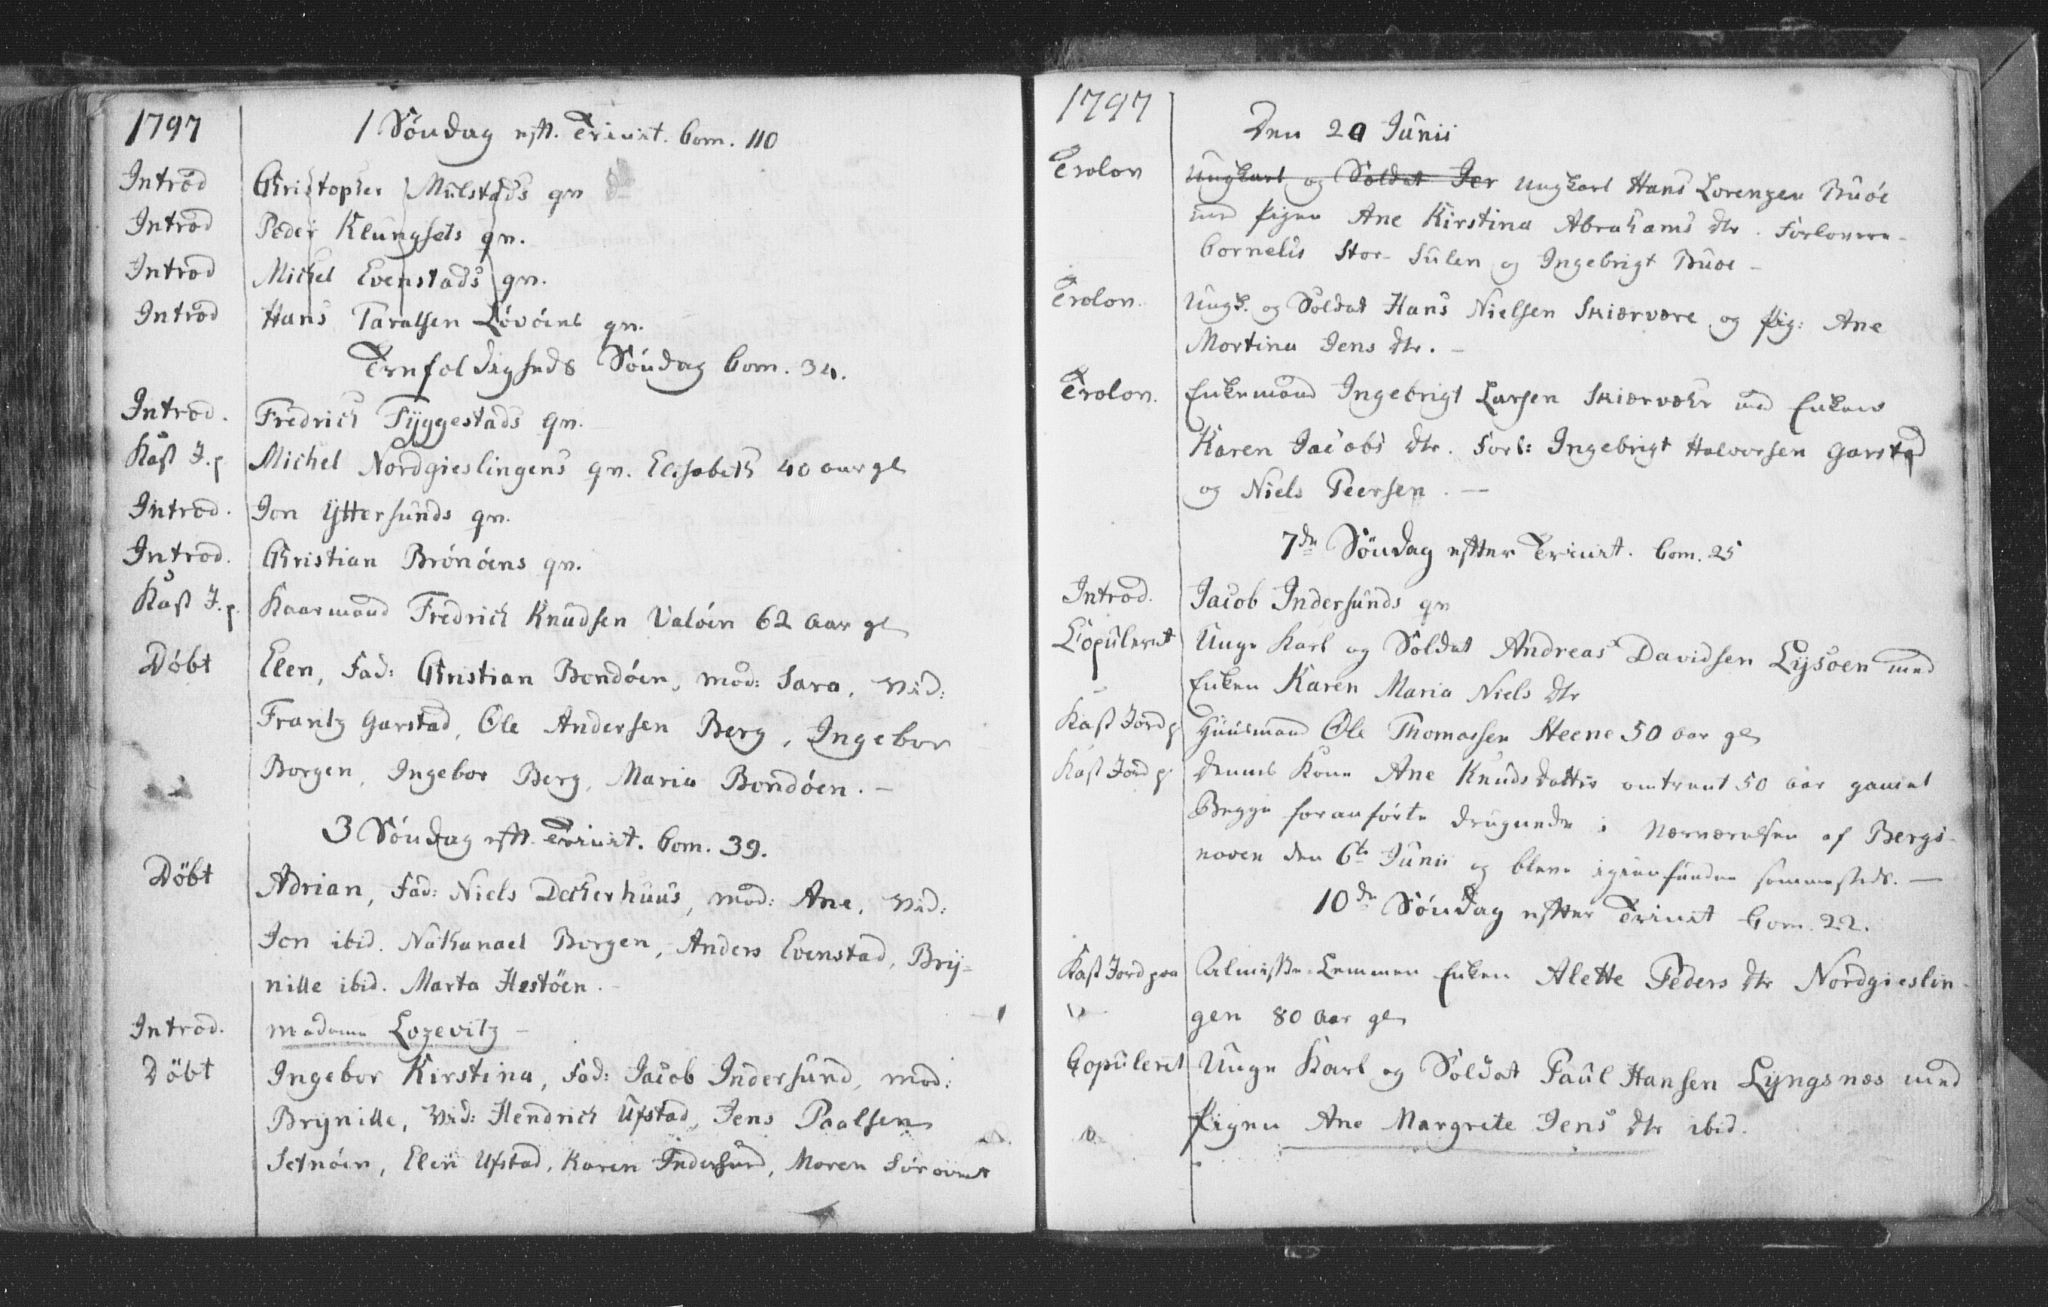 1797
1 Söndag eftr. Trinit. Com. 110
Introd Christopher Mulstads qv.
Introd Peder Klungsets qv.
Introd Michel Evenstads qv.
Introd Hans Taralsen Lövöens qv.
Trefoldigheds Söndag Com. 34.
Introd. Fredrich Tyggestads qv.
Kast J.p Michel Nordgieslingens qv. Elisabeth 40 aar gl
Introd. Jon Yttersunds qv.
Introd. Christian Brönöens qv.
Kast J.p. Kaarmand Fredrich Knudsen Valöen 62 aar gl
Döbt Elen, Fad: Christian Bondöen, mod: Sara, Vid:
Frantz Garstad, Ole Andersen Berg, Ingebor
Borgen, Ingebor Berg, Maria Bondöen. —
3 Söndag eftr. Trinit. Com. 39.
Döbt Adrian, Fad: Niels Deckerhuus, mod: Ane, Vid:
Jon ibid. Nathanael Borgen, Anders Evenstad, Bry-
nille ibid. Marta Hestöen. —
Introd. madame Lozevitz —
Döbt Ingebor Kirstina, Fad: Jacob Indersund, mod:
Brynille, Vid: Hendrich Ufstad, Jens Paalsen
Setnöen, Elen Ufstad, Karen Indersund, Maren
1797
Den 20 Junii
Trolov Ungkarl og Soldat Jer Ungkarl Hans Lorenzen Buöe
med Pigen Ane Kirstina Abrahams dtr. Forlovere
Cornelis Stor-Sulen og Ingebrigt Buöe —
Trolov. Ungk. og Soldat Hans Nielsen Skiærvære og Pig: Ane
Mortina Jens dtr. —
Trolov. Enkemand Ingebrigt Larsen Skiærvær med Enken
Karen Jacobs dtr. Forl: Ingebrigt Halvorsen Garstad
og Niels Peersen. —
7de Söndag efter Trinit. Com. 25
Introd. Jacob Indersunds qv
Copuleret Unge Karl og Soldat Andreas Davidsen Lysöen med
Enken Karen Maria Niels dtr
Kast Jord p Huusmand Ole Thomassen Steene 50 aar gl
Kast Jord p. dennes Kone Ane Knudsdatter omtrent 50 aar gamel
Begge foranförte druknede i Nærværelsen af Bergs-
noven den 6te Junii og bleve igienfunden sammesteds. —
10de Söndag efter Trinit Com. 22.
Kast Jord paa Almisse-Lemmen Enken Alette Peders dtr Nordgieslin-
gen 80 aar gl
Copuleret Unge Karl og Soldat Paul Hansen Lyngsnæs med
Pigen Ane Margrete Jens dtr ibid.